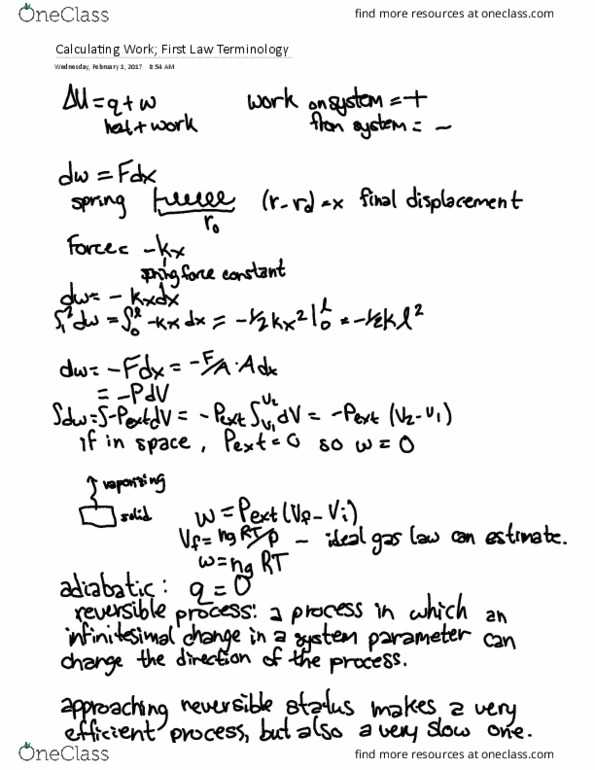 OneClass
find more resources at oneclass.com
Calculating Work; First Law Terminology
Wednesday, February 1, 2017 8:54 AM
ΔU = q + w work on system = +
heat + work from system = -
dw = Fdx
spring (r - r₀) = x final displacement
r₀
Force = -kx
spring force constant
dw = - kxdx
∫₁² dw = ∫₀ˡ -kx dx = -1/2 kx² |₀ˡ = -1/2 k l²
dw = -Fdx = -F/A · A dx
= -PdV
∫dw = ∫-Pext dV = -Pext ∫V₁V₂ dV = -Pext (V₂ - V₁)
if in space, Pext = 0 so w = 0
vaporizing
solid
w = Pext (Vf - Vi)
Vf = ng RT/P - ideal gas law can estimate.
w = ng RT
adiabatic: q = 0
reversible process: a process in which an
infinitesimal change in a system parameter can
change the direction of the process.
approaching reversible status makes a very
efficient process, but also a very slow one.
OneClass
find more resources at oneclass.com